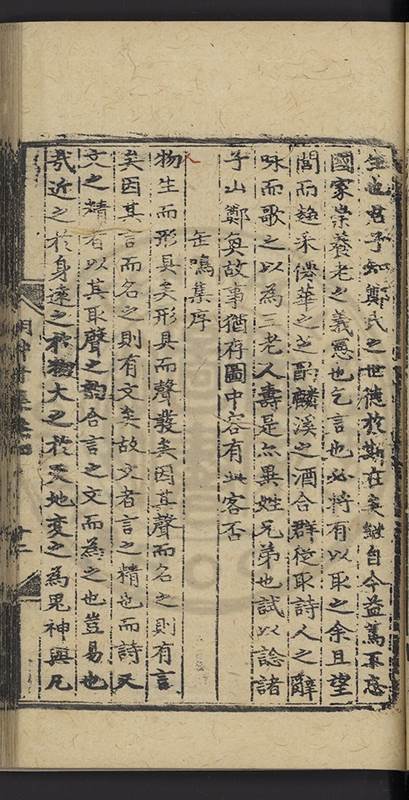 至也君子知鄭氏之世德於斯在矣繼自今益萬不忘
國家崇養老之義憲也乞言也必將有以取之余且望
閭而趍采僊華之芝酌麟溪之酒合群從取詩人之辭
咏而歌之以為三老人壽是亦異姓兄弟也試以諗諸
子山鄭奐故事猶存圖中容有此客否
缶鳴集序
物生而形具矣形具而聲發矣因其聲而名之則有言
矣因其言而名之則有文矣故文者言之精也而詩又
文之精者以其取聲之韵合言之文而為之也豈易也
哉近之於身遠之於物大之於天地変之為鬼神與凡